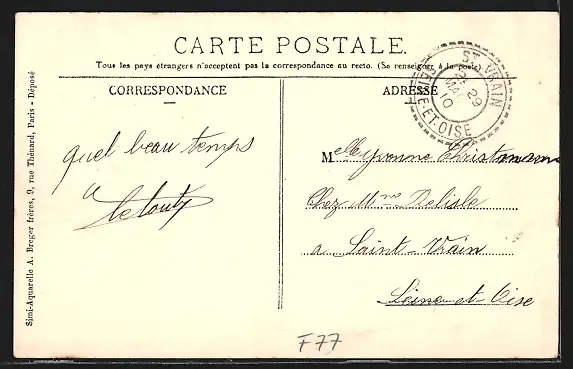 CARTE POSTALE.
Tous les pays étrangers n'acceptent pas la correspondance au recto. (Se renseigner à la poste)
CORRESPONDANCE
ADRESSE
ST VRAIN
29
MAI
10
SEINE-ET-OISE
quel beau temps
a
Melle Yvonne
Chez Mme Delisle
a Saint-Vrain
Seine-et-Oise
Simi-Aquarelle A. Breger frères, 9, rue Thénard, Paris - Déposé
F77